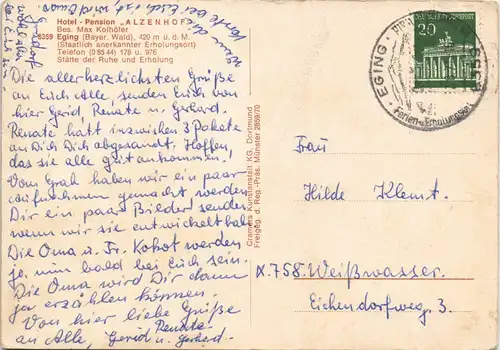 Hotel - Pension „ALZENHOF"
Bes. Max Kolhöfer
8359 Eging (Bayer. Wald), 420 m ü. d. M.
(Staatlich anerkannter Erholungsort)
Telefon (0 85 44) 178 u. 976
Stätte der Ruhe und Erholung
Die allerherzlichsten Grüße
an Euch Alle, senden Euch von
hier Gerid, Renate u. Gerhard.
Renate hatt inzwischen 3 Pakete
an Dich Dich abgesandt. Hoffen,
das sie alle gut ankommen!
Vom Grab haben wir ein paar
aufnahmen gemacht werden
Dir ein paar Bilder senden
wenn wir sie entwickelt hab.
Die Oma u. Fr. Kohot werden
ja nun bald bei Euch sein.
Die Oma wird Dir dann
ja erzählen können.
Von hier liebe Grüße
an Alle, Gerid Renate u. Gerhard.
Cramers Kunstanstalt KG, Dortmund
Freigeg. d. Reg.-Präs. Münster 2869/70
DEUTSCHE BUNDESPOST
20
EGING
Ferien-u Erholungsort
Frau
Hilde Klemt.
X.758. Weißwasser.
Eichendorfweg. 3.